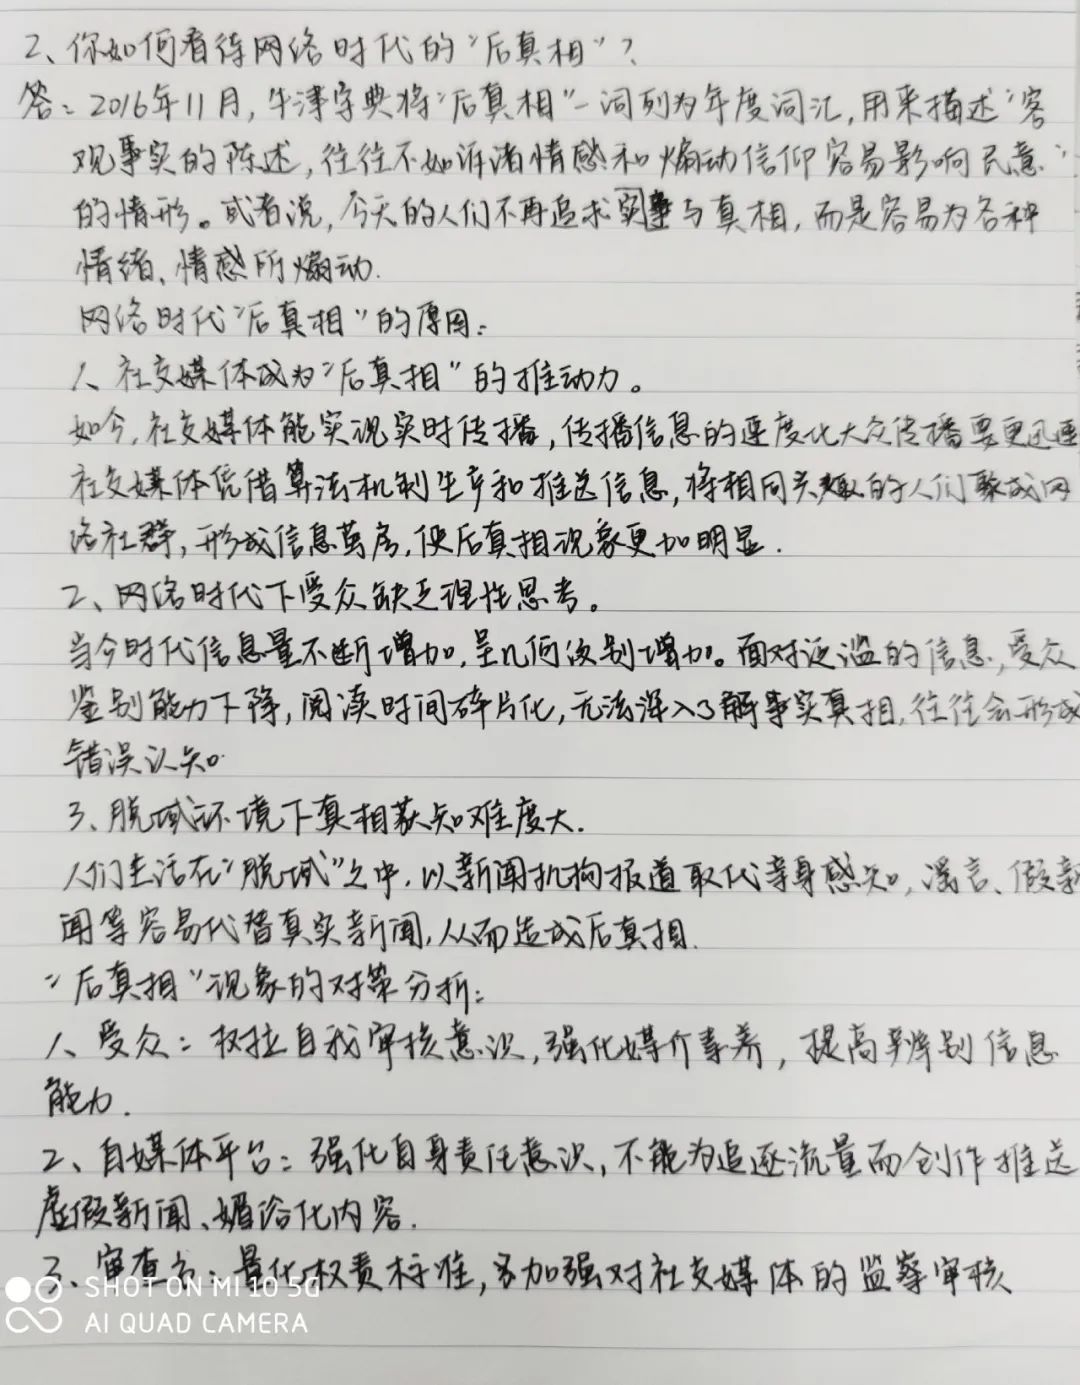 2、你如何看待网络时代的“后真相”？
答：2016年11月，牛津字典将“后真相”一词列为年度词汇，用来描述“客
观事实的陈述，往往不如诉诸情感和煽动信仰容易影响民意”
的情形。或者说，今天的人们不再追求事实与真相，而是容易为各种
情绪、情感所煽动.
网络时代“后真相”的原因：
1、社交媒体成为“后真相”的推动力。
如今，社交媒体能实现实时传播，传播信息的速度比大众传播要更迅速
社交媒体凭借算法机制生产和推送信息，将相同兴趣的人们聚成网
络社群，形成信息茧房，使后真相现象更加明显.
2、网络时代下受众缺乏理性思考。
当今时代信息量不断增加，呈几何级别增加。面对泛滥的信息，受众
鉴别能力下降，阅读时间碎片化，无法深入了解事实真相，往往会形成
错误认知.
3、脱域环境下真相获知难度大.
人们生活在“脱域”之中，以新闻机构报道取代亲身感知，谣言、假新
闻等容易代替真实新闻，从而造成后真相.
“后真相”现象的对策分析：
1、受众：树立自我审核意识，强化媒介素养，提高辨别信息
能力.
2、自媒体平台：强化自身责任意识，不能为追逐流量而创作推送
虚假新闻、媚俗化内容.
3、审查方：量化权责标准，多加强对社交媒体的监察审核
SHOT ON MI 10 5G
AI QUAD CAMERA